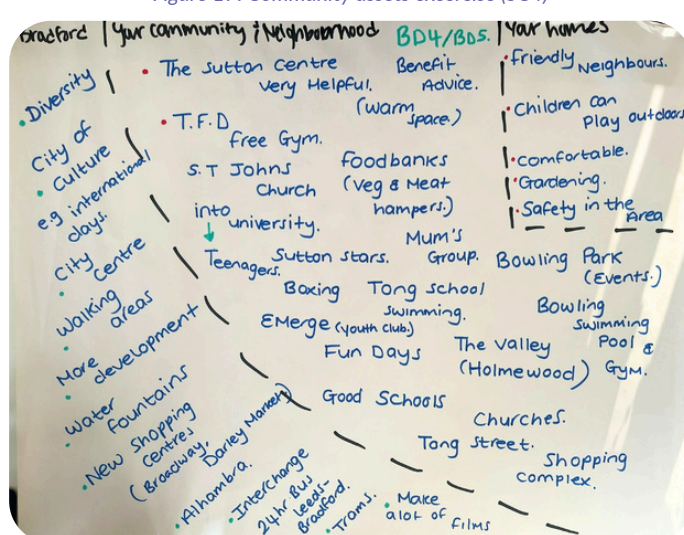 Bradford | Your community & Neighbourhood BD4/BD5. | Your homes
• Diversity
City of
• Culture
e.g international
days.
City
• Centre
Walking
• areas
More
• development
Water
• fountains
• New Shopping
Centres
(Broadway,
Darley Market)
• Alhambra.
• Interchange
24hr Bus
Leeds-
Bradford.
• Trams.
• Make
alot of films
• The Sutton Centre
Very Helpful.
Benefit
Advice.
(warm
space.)
• T.F.D
free Gym.
S.T Johns
Church
Foodbanks
(Veg & Meat
hampers.)
into
university.
↓
Teenagers.
Sutton Stars.
Mum's
Group.
Bowling Park
(Events.)
Boxing
Tong School
Swimming.
Bowling
Swimming
Pool &
Gym.
EMerge (youth club.)
Fun Days
The Valley
(Holmewood)
Good Schools
Churches.
Tong Street.
Shopping
Complex.
• Friendly Neighbours.
• Children can
Play outdoors
• comfortable.
• Gardening.
• Safety in the Area